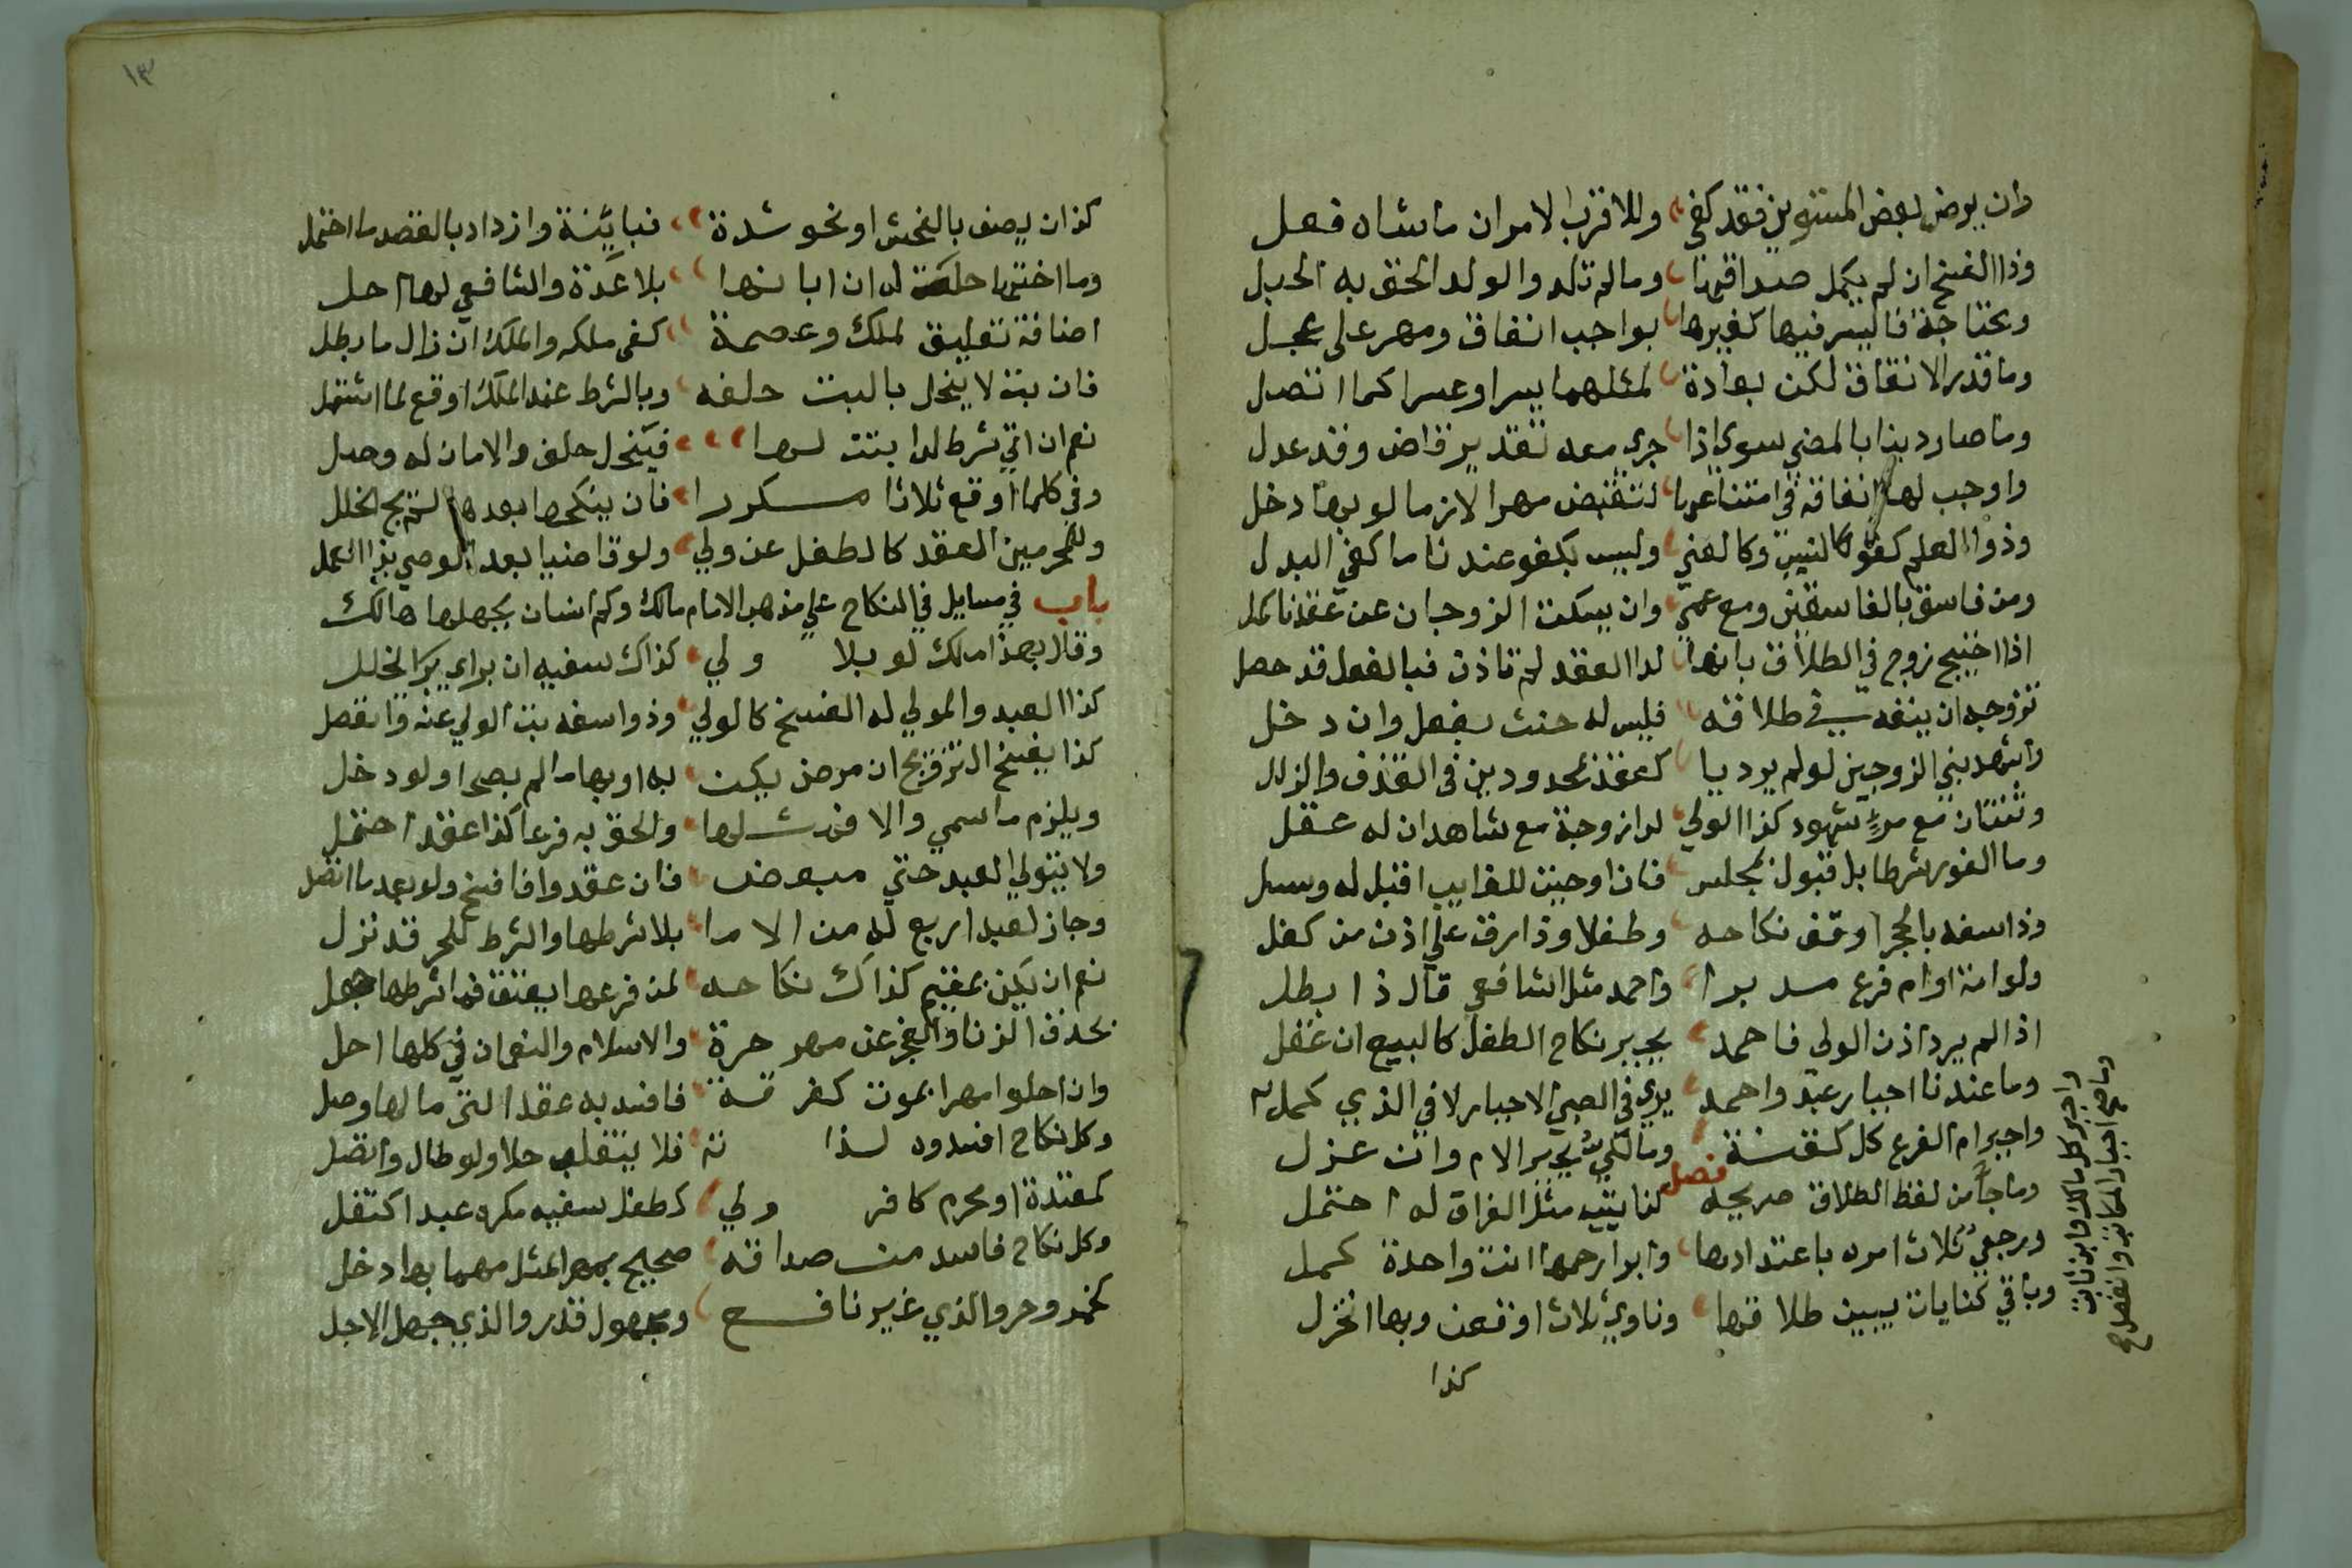 وان يرض بعض المستوين فقد كفى وللاقرب الامران ماشاه فعل
وذا الفسخ ان لم يكمل صداقهنا وما لم تلد والولد الحق به الحبل
ومحتاجة فاليسر فيها كغيرها بواجب انفاق ومهر على عجل
وما قدر الانفاق لكن بعادة لمثلهما يسرا وعسرا كما اتصل
وما صار دينا بالمضي سوى اذا جرى معه تقدير قاض وقد عدل
واوجب لها انفاقه في امتناعها لتقبض مهرا لازما لو بها دخل
وذو العلم كفو كالنسيب وكالغني وليس بكفو عندنا ما كفى البدل
ومن فاسق بالفاسقين ومع عمى وان يسكت الزوجان عن عقدنا كمل
اذا احتج زوج في الطلاق بانها لدا العقد لم تاذن فبالفعل قد حصل
تزوجه ان ينفه في طلاقه فليس له حنث بفعل وان دخل
واشهد بني الزوجين لو لم يرد بيا كعقد محدودين في القذف والزلل
وثنتان مع مرء شهود كذا الولي لدا زوجة مع شاهدان له عقل
وما الفور شرطا بل قبول بمجلس فان اوجبت للغايب اقبل له وسل
وذا سفه بالحجر اوقف نكاحه وطفلا وذا رق على اذن من كفل
ولو امة او ام فرع مدبرا واحمد مثل الشافعي قال ذا بطل
اذا لم يرد اذن الولي فاحمد يجيز نكاح الطفل كالبيع ان غفل
وما عندنا اجبار عبد واحمد يرى في الصبي الاجبار لا في الذي كمل
واجبر ام الفرع كل كقنة ومالكي يجبر الام وان عزل
فصل
وما جأ من لفظ الطلاق صريحه كنايته مثل الفراق له احتمل
ورجعي ثلاث امره باعتدادها وابرا رحمها انت واحدة كمل
وباقي كنايات يبين طلاقها وناوي ثلاث اوقعن وبها انخزل
كذا
كذا ان يصف بالفحش او نحو شدة فباينة وازداد بالقصد ما احتمل
وما اختير احلت له ان ابانها بلا عدة والشافعي لها احل
اضافة تعليق لملك وعصمة كفى ملكه والملك ان زال ما بطل
فان بت لا ينحل بالبت حلفه وبالشرط عند الملك اوقع لما اشتمل
نعم ان اتى شرط لدا بتت لها فينحل حلف والامان له وصل
وفي كلما اوقع ثلاثا مكررا فان ينكحها بعدها لم يج الخلل
وللمحرمين العقد كالطفل عن ولي ولو قاضيا بعد الوصي بذا العمل
باب في مسايل في النكاح على مذهب الامام مالك وكم انسان يجهلها هالك
وقال بهذا مالك لو بلا ولي كذاك سفيه ان براي يرا الخلل
كذا العبد والمولي له الفسخ كالولي وذو اسفه بت الولي عنه وانفصل
كذا يفسخ التزويج ان مرض يكن به او بها ما لم يصحا ولو دخل
ويلزم ما سمي والا فمثلها والحق به فرعا كذا عقد احتمل
ولا يتولي العبد حتى مبعض فان عقدوا فافسخ ولو بعد ما اتصل
وجاز لعبد اربع له من الاما بلا شرطها والشرط للحر قد نزل
نعم ان يكن بعقيم كذاك نكاحه لمن فرعها يعتق فما شرطها جهل
بخذف الزنا والعجز عن مهر حرة والاسلام والنعمان في كلها احل
وان احلوا مهرا بموت كفرقة فافسد به عقد التي مالها وصل
وكل نكاح افسدوه لذاته فلا ينقلب حلا ولو طال واتصل
كمعتدة او محرم كافر ولي كطفل سفيه مكره عبد اكتفل
وكل نكاح فاسد من صداقه صحيح بمهر المثل مهما بها دخل
كخمر وحر والذي غير نافع ومجهول قدر والذي جهل الاجل